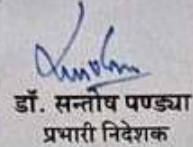 डॉ. सन्तोष पण्ड्या
प्रभारी निदेशक